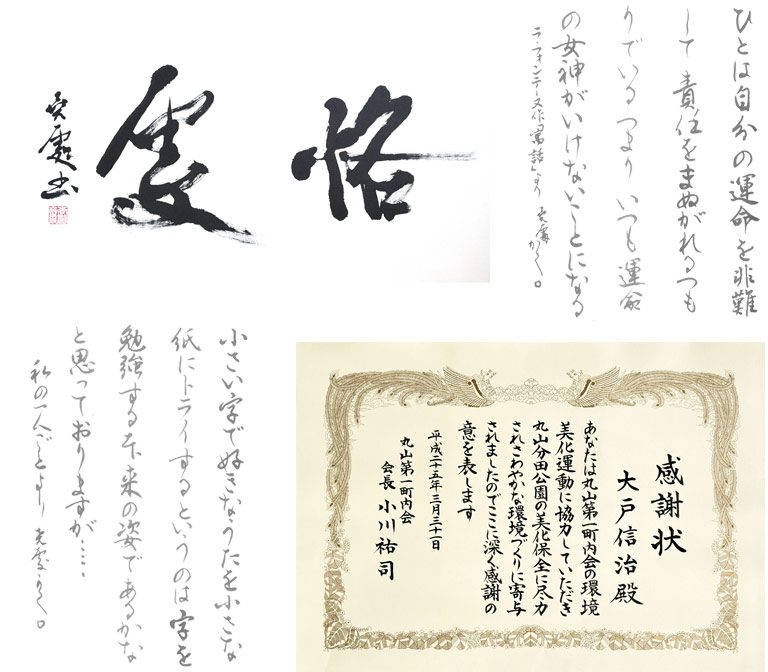 恪
ひとは自分の運命を非難
して責任をまぬがれるつも
りでいるつまりいつも運命
の女神がいけないことになる
ラ・フォンテーヌ作「寓話」より かく。
小さい字で好きなうたを小さな
紙にトライするというのは字を
勉強する本来の姿であるかな
と思っておりますが……
私の一人ごとより かく。
感謝状
大戸信治殿
あなたは丸山第一町内会の環境
美化運動に協力していただき
丸山分田公園の美化保全に尽力
されさわやかな環境づくりに寄与
されましたのでここに深く感謝の
意を表します
平成二十五年三月三十一日
丸山第一町内会
会長 小川祐司